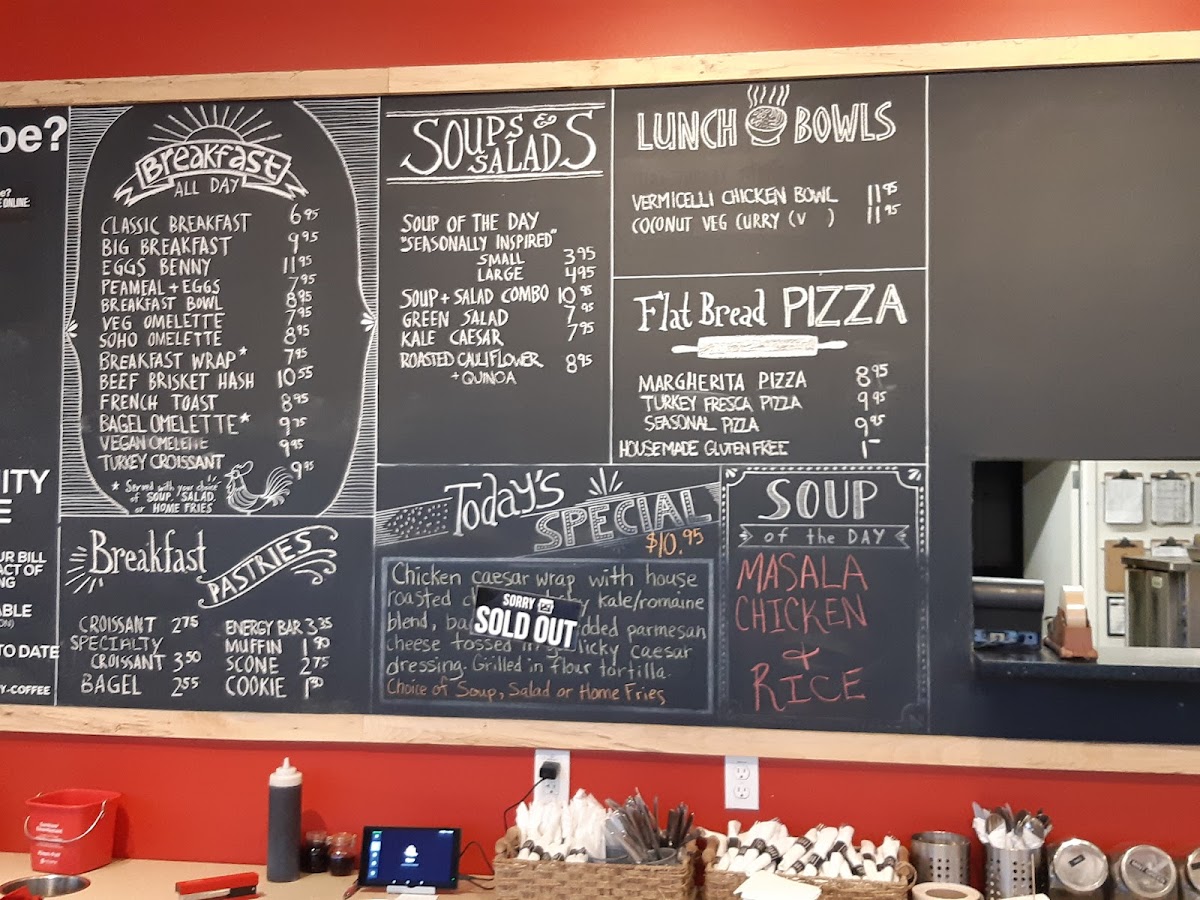 oe?
e?
E ONLINE:
NITY
E
UR BILL
ACT OF
NG
ABLE
ON)
TO DATE
Y-COFFEE
Breakfast
ALL DAY
CLASSIC BREAKFAST 6.95
BIG BREAKFAST 9.95
EGGS BENNY 11.95
PEAMEAL + EGGS 7.95
BREAKFAST BOWL 8.95
VEG OMELETTE 7.95
SOHO OMELETTE 8.95
BREAKFAST WRAP* 7.95
BEEF BRISKET HASH 10.55
FRENCH TOAST 8.95
BAGEL OMELETTE* 9.75
VEGAN OMELETTE 9.95
TURKEY CROISSANT 9.95
* Served with your choice
of SOUP, SALAD,
or HOME FRIES
Breakfast
PASTRIES
CROISSANT 2.75
SPECIALTY
CROISSANT 3.50
BAGEL 2.55
ENERGY BAR 3.35
MUFFIN 1.90
SCONE 2.75
COOKIE 1.90
SOUPS &
SALADS
SOUP OF THE DAY
"SEASONALLY INSPIRED"
SMALL 3.95
LARGE 4.95
SOUP + SALAD COMBO 10.95
GREEN SALAD 7.95
KALE CAESAR 7.95
ROASTED CAULIFLOWER 8.95
+ QUINOA
LUNCH BOWLS
VERMICELLI CHICKEN BOWL 11.95
COCONUT VEG CURRY (V ) 11.95
Flat Bread PIZZA
MARGHERITA PIZZA 8.95
TURKEY FRESCA PIZZA 9.95
SEASONAL PIZZA 9.95
HOUSEMADE GLUTEN FREE 1-
Today's
SPECIAL
$10.95
Chicken caesar wrap with house
roasted kale/romaine
blend, parmesan
cheese tossed in caesar
dressing. Grilled in flour tortilla.
Choice of Soup, Salad or Home Fries
SORRY
SOLD OUT
SOUP
of the DAY
MASALA
CHICKEN
+
RICE